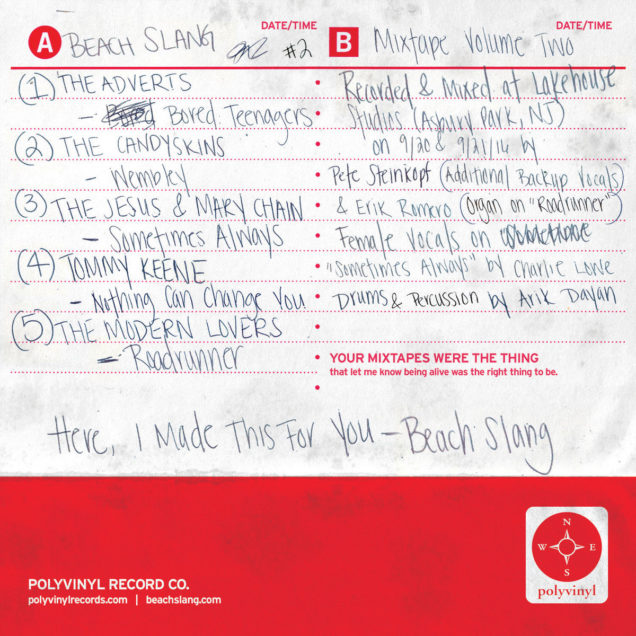 DATE/TIME
A BEACH SLANG #2
(1) THE ADVERTS
- Bored Teenagers
(2) THE CANDYSKINS
- Wembley
(3) THE JESUS & MARY CHAIN
- Sometimes Always
(4) TOMMY KEENE
- Nothing Can Change You
(5) THE MODERN LOVERS
- Roadrunner
DATE/TIME
B Mixtape Volume Two
Recorded & Mixed at Lakehouse
Studios (Asbury Park, NJ)
on 9/20 & 9/21/16 by
Pete Steinkopf (Additional Backup Vocals)
& Erik Romero (Organ on "Roadrunner")
Female Vocals on
"Sometimes Always" by Charlie Lowe
Drums & Percussion by Arik Dayan
YOUR MIXTAPES WERE THE THING
that let me know being alive was the right thing to be.
Here, I Made This For You - Beach Slang
POLYVINYL RECORD CO.
polyvinylrecords.com | beachslang.com
N
W E
S
polyvinyl